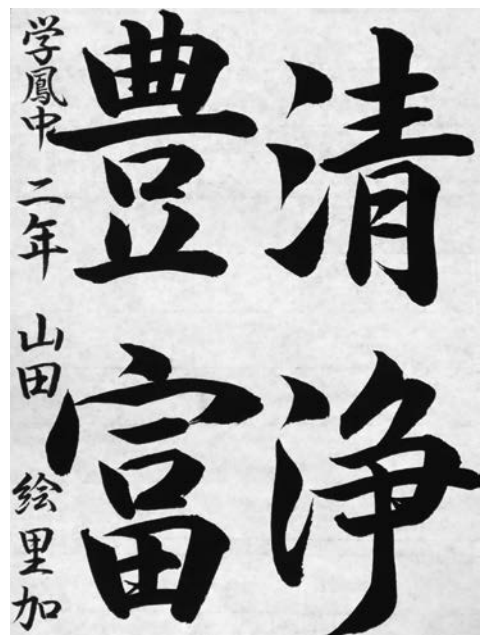 清浄
豊富
学鳳中 二年 山田 絵里加